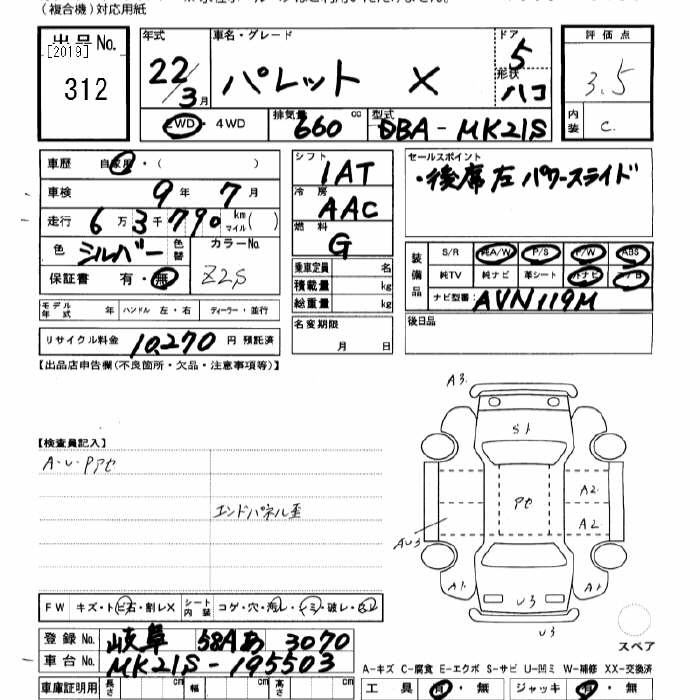 (複合機)対応用紙
出品No. [2019] 312
年式 22/3月
車名・グレード パレット X
ドア 5
形状 ハコ
評価点 3.5
内装 C.
2WD・4WD
排気量 660 cc
型式 DBA-MK21S
車歴 自家用・( )
車検 9年 7月
走行 6万3千790 km マイル( )
色 シルバー 色替
カラーNo. Z2S
保証書 有・無
モデル年式 年 ハンドル 左・右 ディーラー・並行
リサイクル料金 10,270 円 預託済
シフト IAT
冷房 AAC
燃料 G
乗車定員 名
積載量 kg
総重量 kg
名変期限
月 日
セールスポイント
・後席左パワースライド
装備品 S/R 純A/W P/S P/W ABS
純TV 純ナビ 革シート 外ナビ
ナビ型番 AVN119M
後日品
【出品店申告欄(不良箇所・欠品・注意事項等)】
【検査員記入】
A・U・Pアセ
エンドパネル歪
A3.
S1
Pセ
A2.
A2
AU3
A1.
A1
U3
U3
スペア
FW キズ・トビ石・割レX シート内装 コゲ・穴・汚レ・シミ・破レ・
登録No. 岐阜 58Aあ 3070
車台No. MK21S-195503
車庫証明用 長さ cm 幅 cm 高さ cm
A-キズ C-腐食 E-エクボ S-サビ U-凹ミ W-補修 XX-交換済
工具 有・無 ジャッキ 有・無